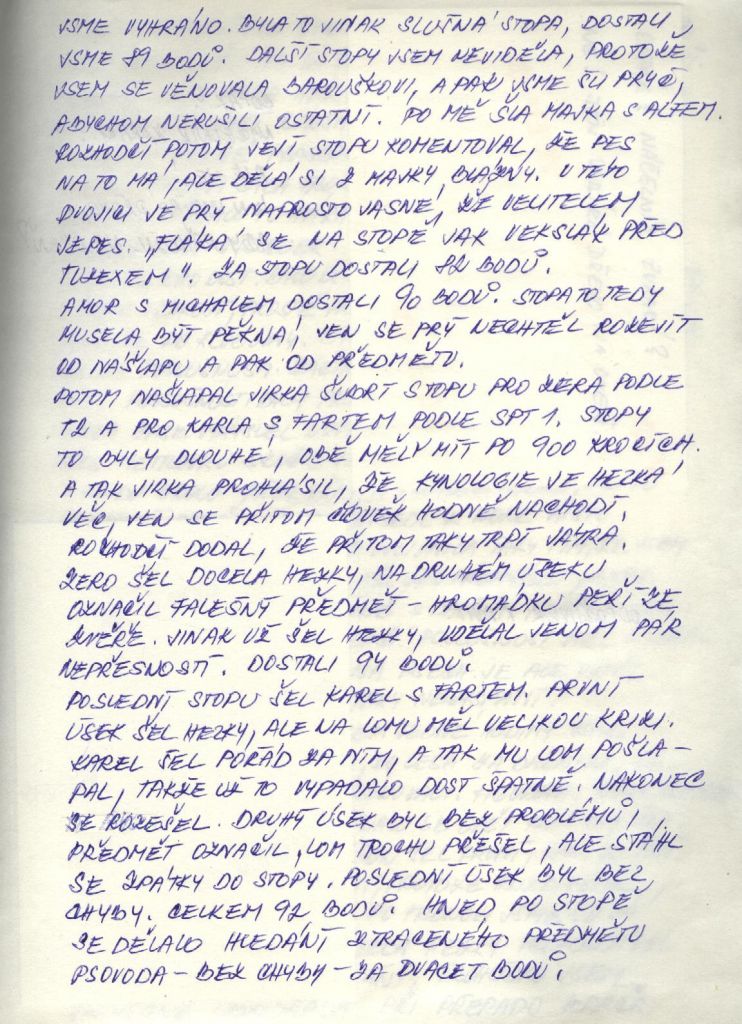 JSME VYHRÁNO. BYLA TO JINAK SLUŠNÁ STOPA, DOSTALI
JSME 89 BODŮ. DALŠÍ STOPY JSEM NEVIDĚLA, PROTOŽE
JSEM SE VĚNOVALA BAROUŠKOVI, A PAK JSME ŠLI PRYČ,
ABYCHOM NERUŠILI OSTATNÍ. PO MĚ ŠLA MAJKA S ALFEM.
ROZHODČÍ POTOM JEJÍ STOPU KOMENTOVAL, ŽE PES
NA TO MÁ, ALE DĚLÁ SI Z MAJKY BLÁZNY. U TÉTO
DVOJICI JE PRÝ NAPROSTO JASNÉ, ŽE VELITELEM
JE PES. „FLÁKÁ SE NA STOPĚ JAK VEKSLÁK PŘED
TUZEXEM". ZA STOPU DOSTALI 82 BODŮ.
AMOR S MICHALEM DOSTALI 90 BODŮ. STOPA TO TEDY
MUSELA BÝT PĚKNÁ, JEN SE PRÝ NECHTĚL ROZEJÍT
OD NÁŠLAPU A PAK OD PŘEDMĚTU.
POTOM NAŠLAPAL JIRKA ŠUORT STOPU PRO ZERA PODLE
TZ A PRO KARLA S FARTEM PODLE SPT 1. STOPY
TO BYLY DLOUHÉ, OBĚ MĚLY MÍT PO 900 KROCÍCH.
A TAK JIRKA PROHLÁSIL, ŽE KYNOLOGIE JE HEZKÁ
VĚC, JEN SE PŘITOM ČLOVĚK HODNĚ NACHODÍ.
ROZHODČÍ DODAL, ŽE PŘITOM TAKY TRPÍ JÁTRA.
ZERO ŠEL DOCELA HEZKY, NA DRUHÉM ÚSEKU
OZNAČIL FALEŠNÝ PŘEDMĚT – HROMÁDKU PEŘÍ ZE
ZVĚŘE. JINAK UŽ ŠEL HEZKY, UDĚLAL JENOM PÁR
NEPŘESNOSTÍ. DOSTALI 94 BODŮ.
POSLEDNÍ STOPU ŠEL KAREL S FARTEM. PRVNÍ
ÚSEK ŠEL HEZKY, ALE NA LOMU MĚL VELIKOU KRIZI.
KAREL ŠEL POŘÁD ZA NÍM, A TAK MU LOM POŠLA –
PAL, TAKŽE UŽ TO VYPADALO DOST ŠPATNĚ. NAKONEC
SE ROZEŠEL. DRUHÝ ÚSEK BYL BEZ PROBLÉMŮ,
PŘEDMĚT OZNAČIL, LOM TROCHU PŘEŠEL, ALE STÁHL
SE ZPÁTKY DO STOPY. POSLEDNÍ ÚSEK BYL BEZ
CHYBY. CELKEM 92 BODŮ. HNED PO STOPĚ
SE DĚLALO HLEDÁNÍ ZTRACENÉHO PŘEDMĚTU
PSOVODA – BEZ CHYBY – ZA DVACET BODŮ.